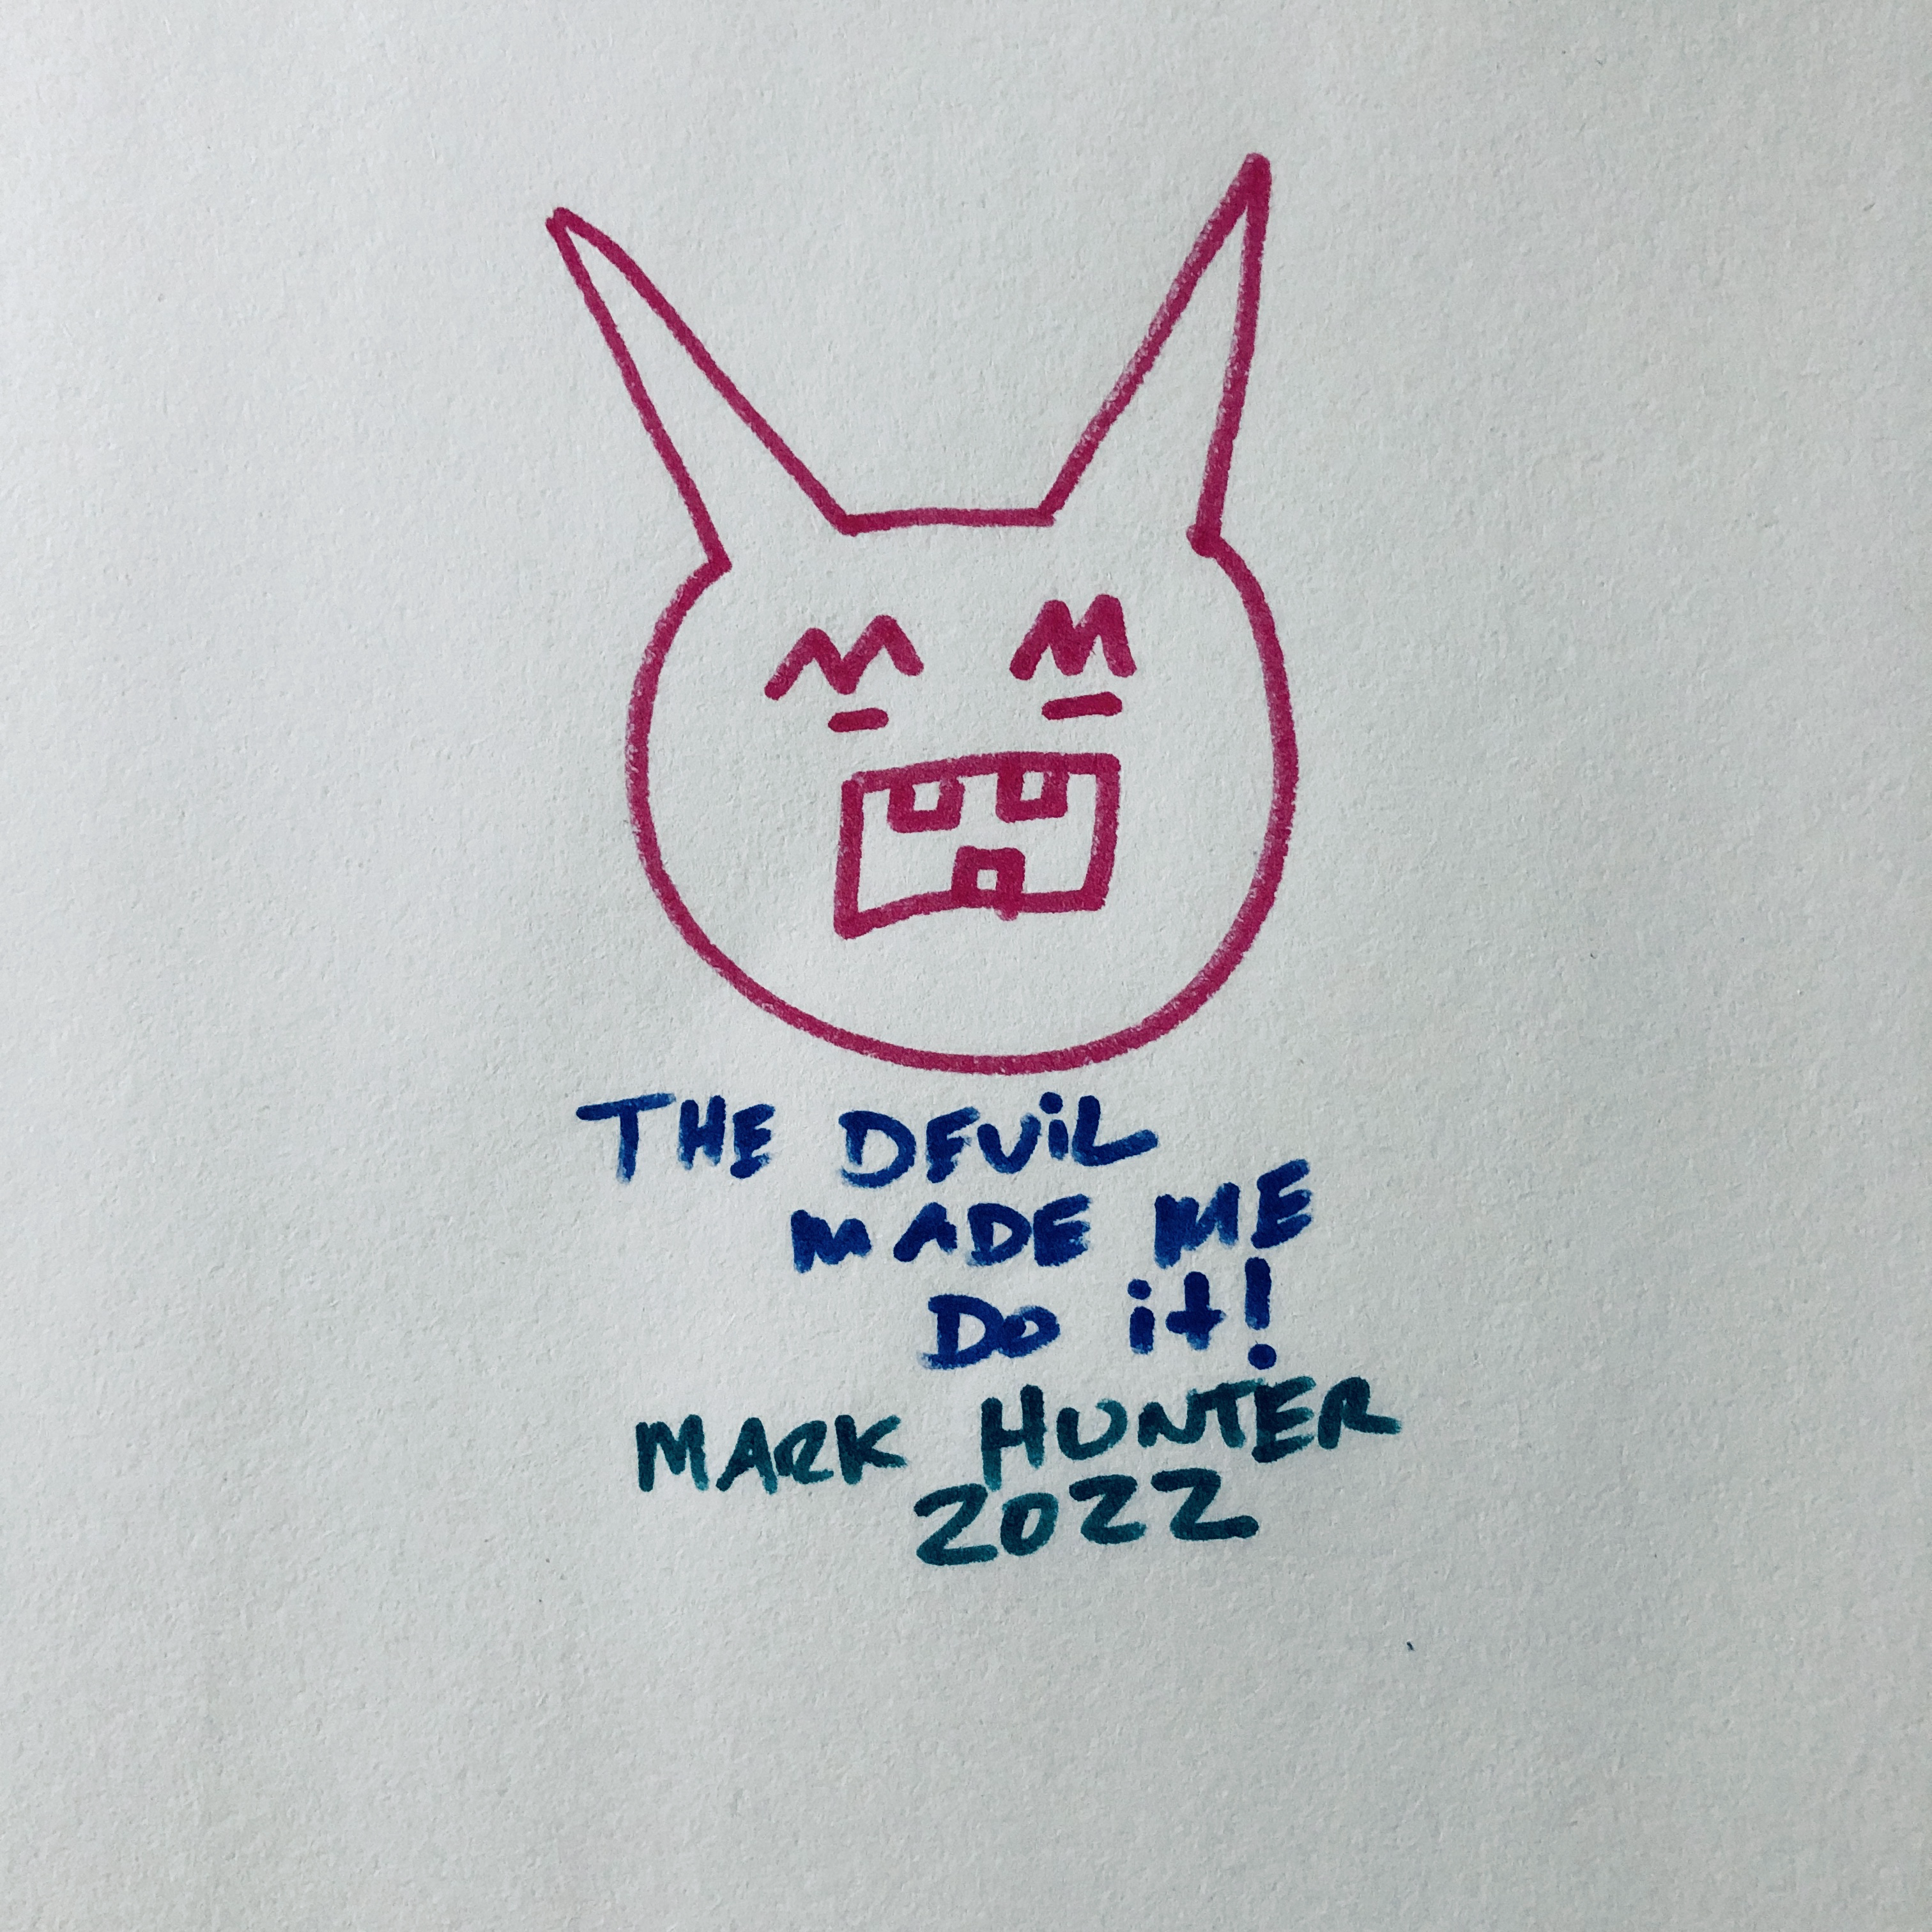 THE DEViL
MADE ME
Do it!
MARK HUNTER
2022